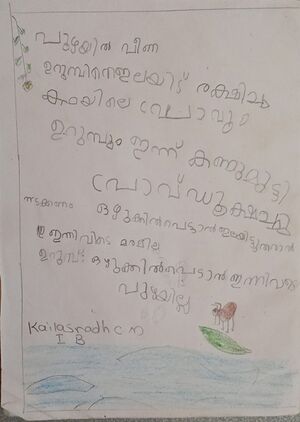 പുഴയിൽ വീണ
ഉറുമ്പിനെഇലയിട് രക്ഷിച്ച
കഥയിലെ പ്രാവും
ഉറുമ്പും ഇന്ന് കണ്ടുമുട്ടി
ഒഴുക്കിൽപെട്ടാൻ ഇലയിട്ടുതരാൻ
ഇന്നിവിടെ മരമില്ല
ഉറുമ്പ്: ഒഴുക്കിൽപെട്ടാൻ ഇന്നിവിടെ
പുഴയില്ല
Kailasnadh C M
I B